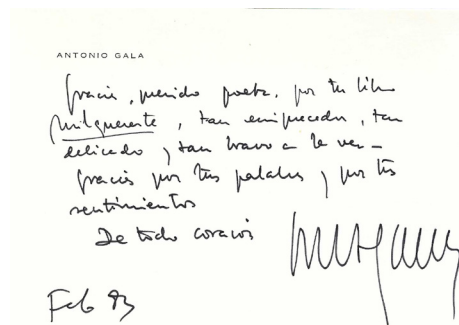 ANTONIO GALA
Gracias, querido poeta, por tu libro
, tan enriquecedor, tan
delicado y tan bravo a la vez –
Gracias por tus palabras y por tus
sentimientos
De todo corazón
Feb 93